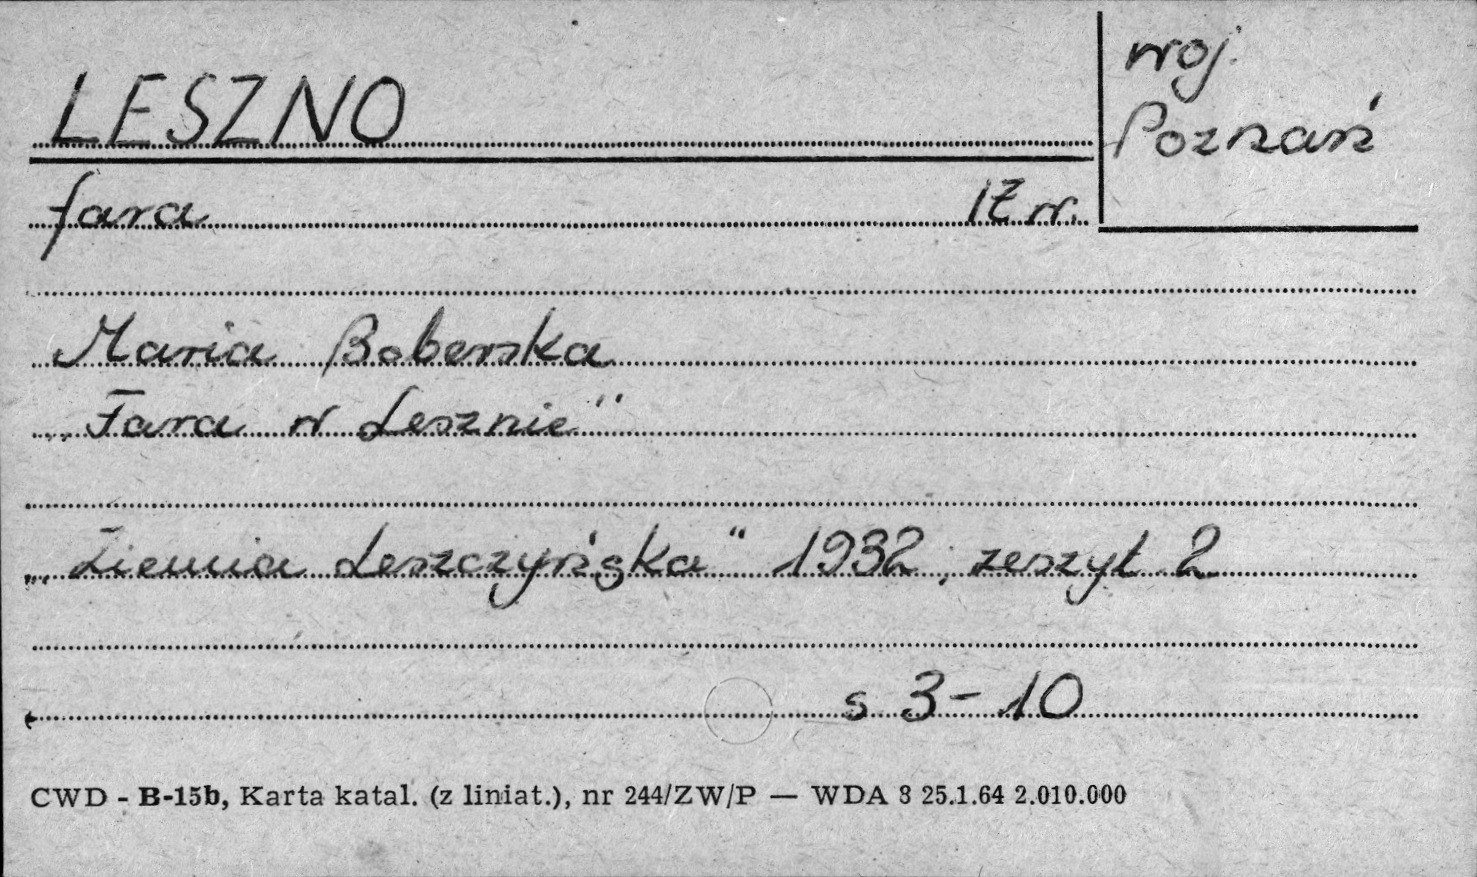 LESZNO
woj.
Poznań
fara 17 w.
Maria Boberska
„Fara w Lesznie"
„Ziemia Leszczyńska" 1932, zeszyt 2
s 3-10
CWD - B-15b, Karta katal. (z liniat.), nr 244/ZW/P — WDA 3 25.1.64 2.010.000